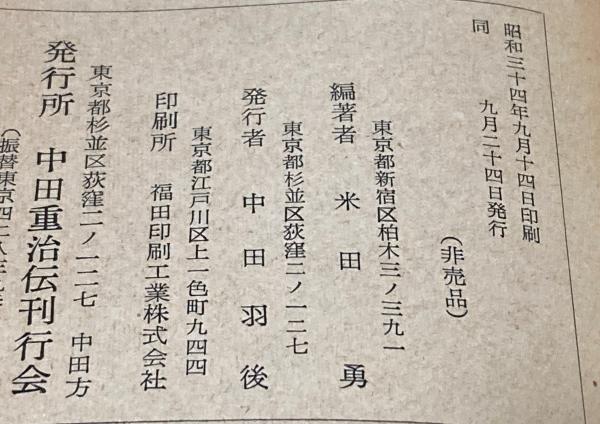 昭和三十四年九月十四日印刷
同　　　　九月二十四日発行
（非売品）
東京都新宿区柏木三ノ三九一
編著者　米田　勇
東京都杉並区荻窪二ノ一二七
発行者　中田羽後
東京都江戸川区上一色町九四四
印刷所　福田印刷工業株式会社
東京都杉並区荻窪二ノ一二七　中田方
発行所　中田重治伝刊行会
（振替東京四二八